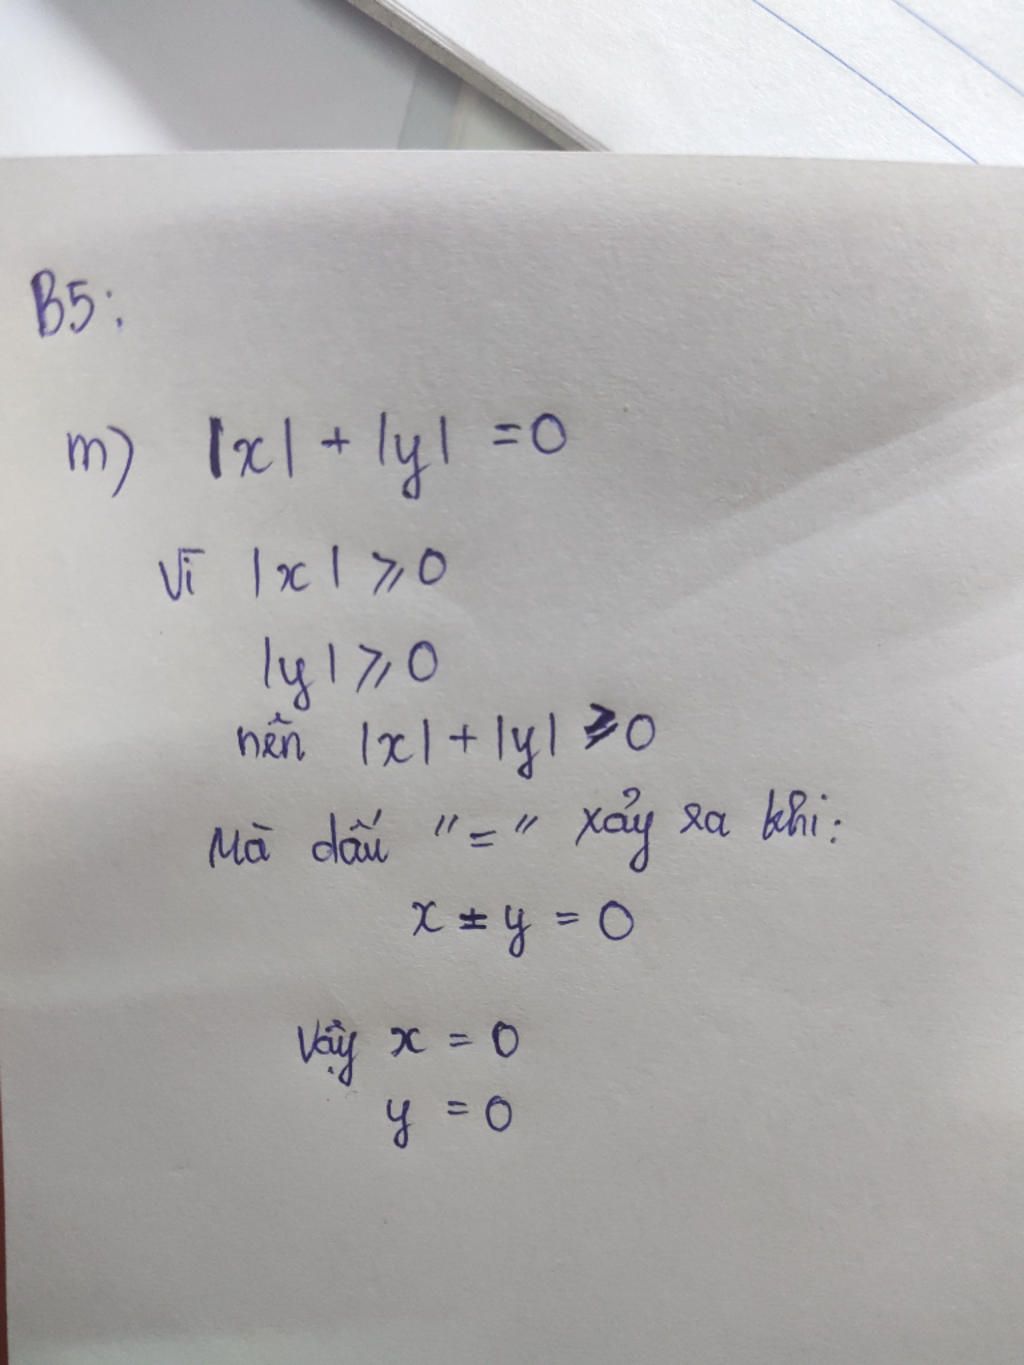 B5:
m) |x| + |y| = 0
Vì |x| ⩾ 0
|y| ⩾ 0
nên |x| + |y| ⩾ 0
Mà dấu "=" xảy ra khi:
x = y = 0
Vậy x = 0
y = 0